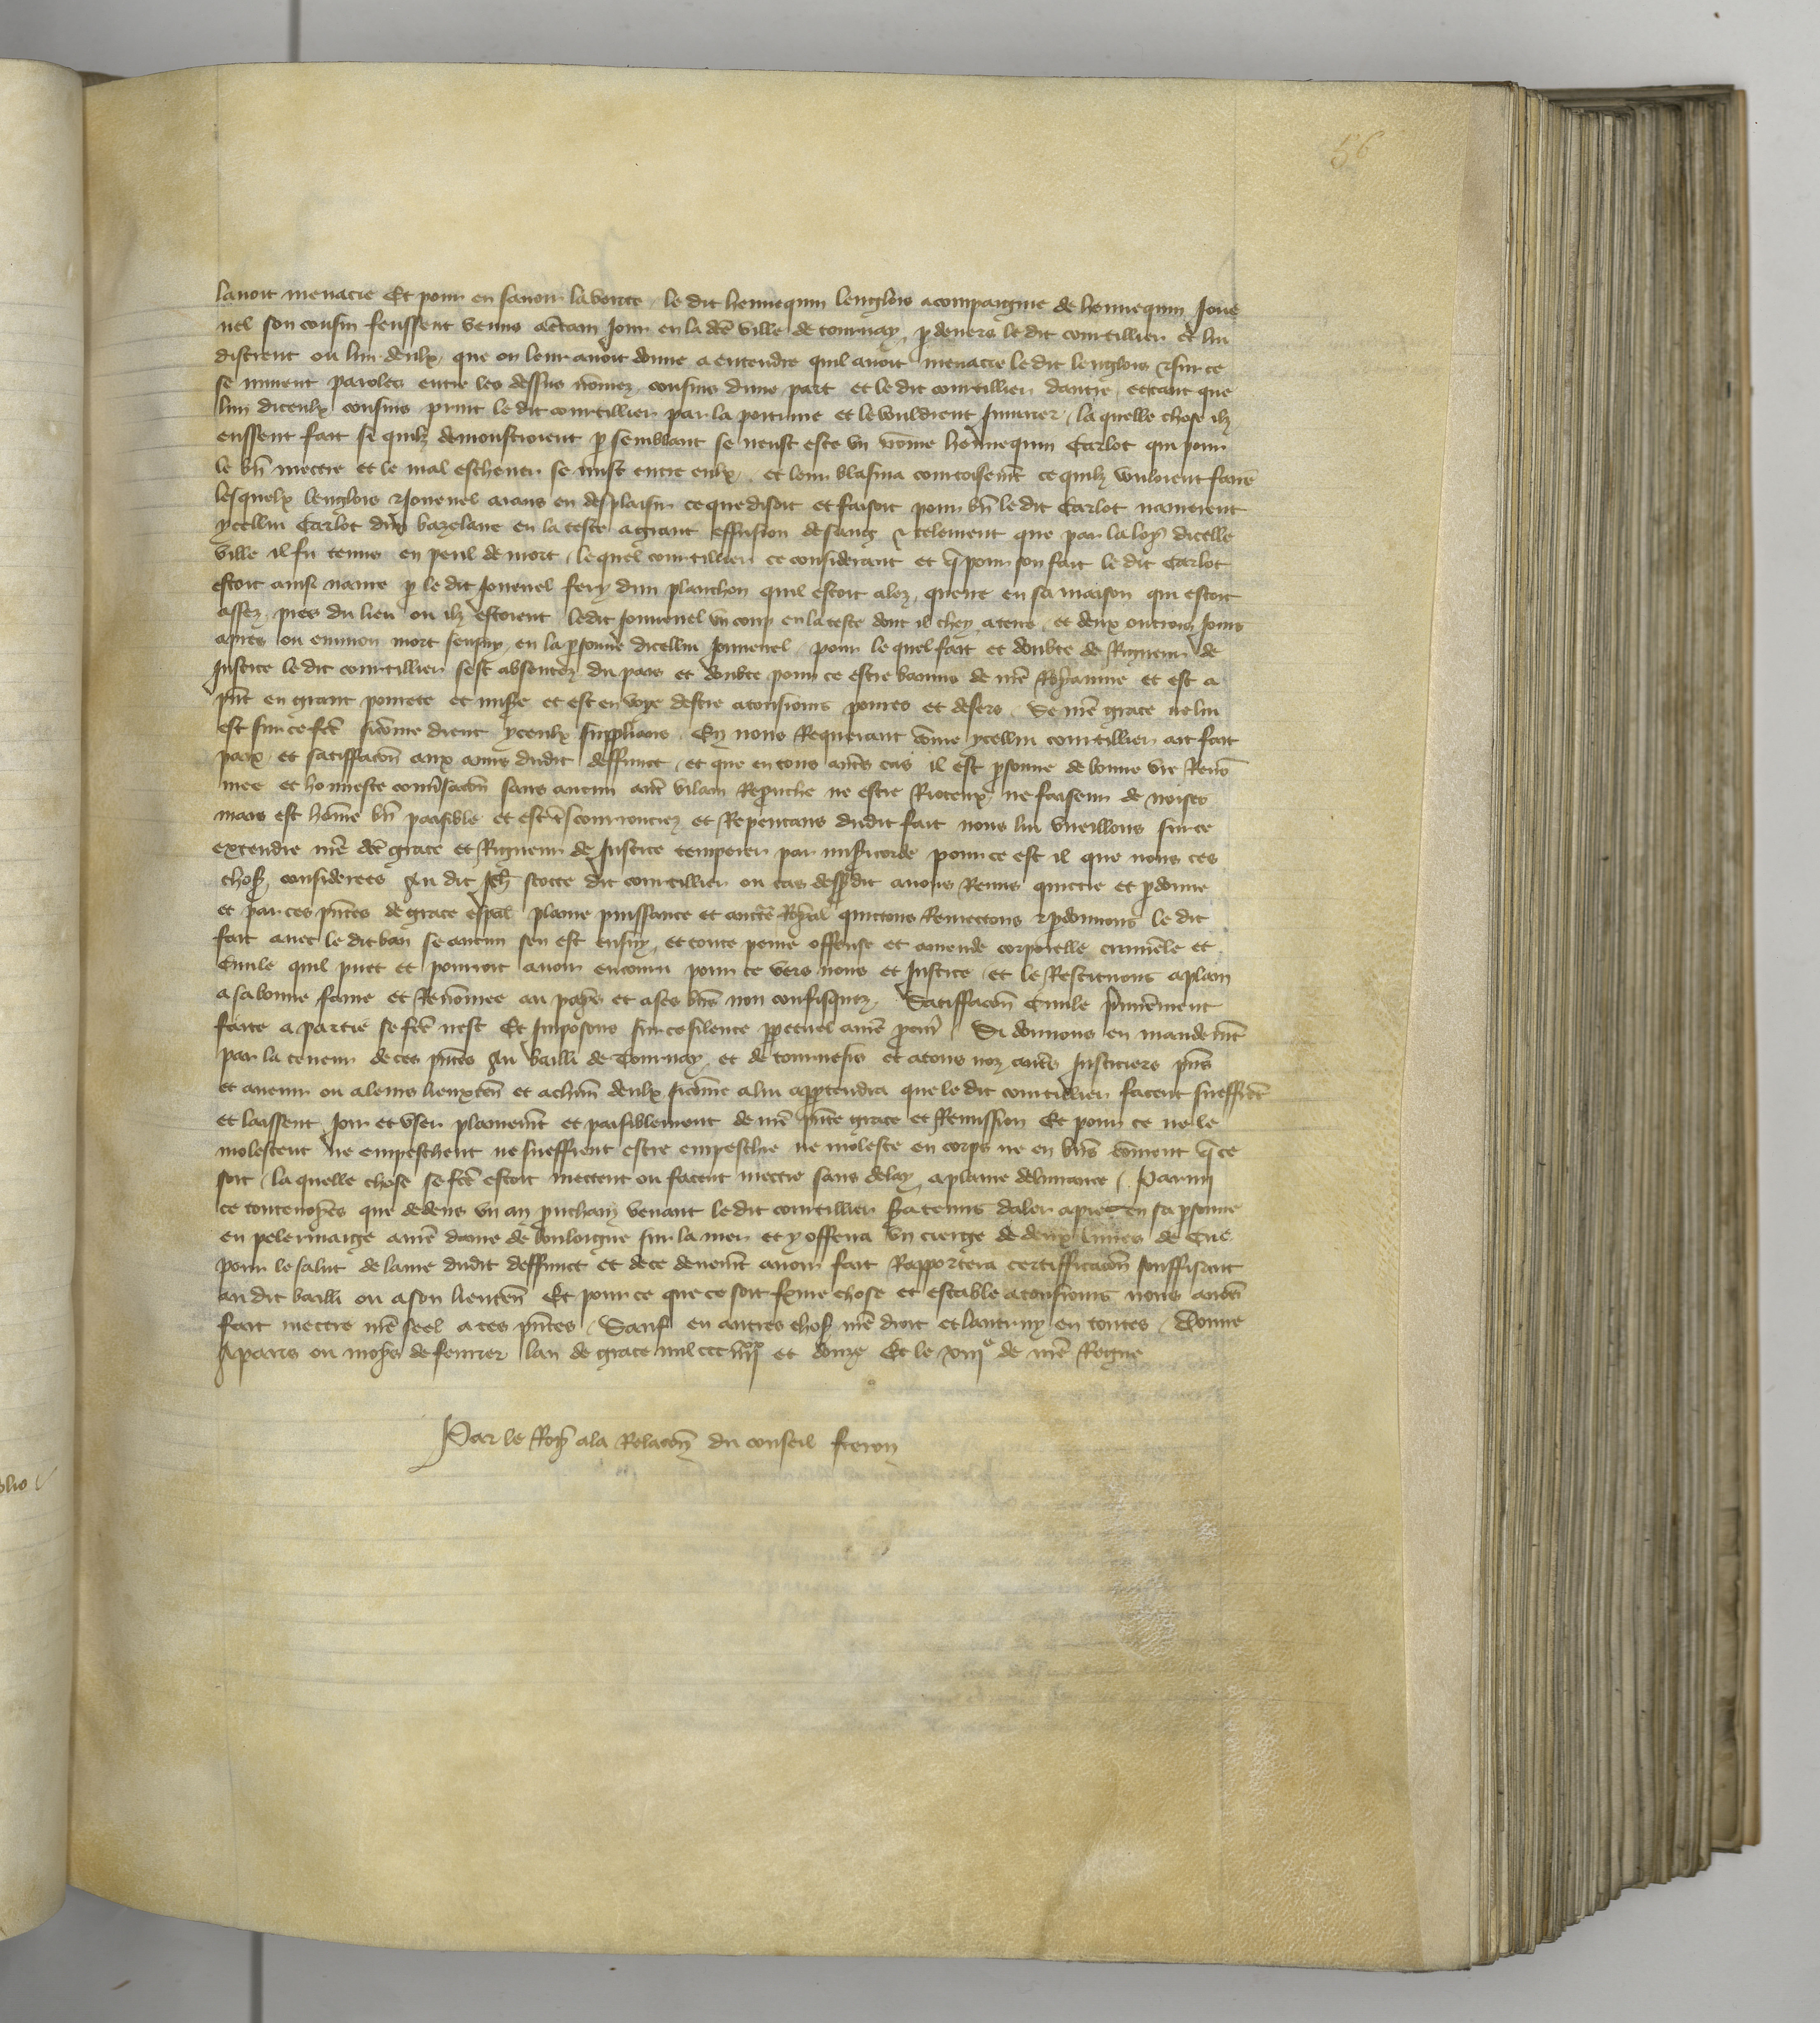 56
lavoit menacie Et pour en savoir la verite le dit hennequin lenglois acompaignie de hennequin Joue
nel son cousin feussent venus certain Jour en la dcē ville de tournay p devers le dit courtillier et lui
distrent ou lun deulx que on leur avoit donne a entendre quil avoit menacie le dit lenglois & sur ce
se murent paroles entre les dessus nōmez cousins dune part et le dit courtillier dautre et tant que
lun diceulx cousins print le dit courtillier par la poitrine et le vouldrent Jniurier la quelle chose ilz
eussent fait si quilz demonstroient p semblant se neust este un nōme hennequin Carlot qui pour
le bn mectre et le mal eschever se mist entre eulx et leur blasma courtoisemt ce quilz vouloient faire
lesquelx lenglois & Jouenel aians en desplaisir ce que disoit et faisoit pour bn le dit Carlot navrerent
ycellui Carlot dun bazelaire en la teste a grant effusion de sang & telement que par la loy dicelle
ville il fu tenus en peril de mort le quel courtillier ce considerant et q pour son fait le dit Carlot
estoit ainsi navre p le dit Jouenel fery dun planchon quil estoit alez querre en sa maison qui estoit
assez pres du lieu ou ilz estoient ledit Jouuenel un coup en la teste dont il chey a terre et deux ou trois Jours
apres ou environ mort sensuy en la psonne dicellui Jouuenel pour le quel fait et doubte de Rigueur de
Justice le dit courtillier sest absentez du pais et doubte pour ce estre bannis de nrē Royaume et est a
pnt en grant povrete et misere et est en voye destre a tousiours povres et desers Se nrē grace ne lui
est sur ce fcē sicōme dient yceulx supplians En nous Requerant cōme ycellui courtillier ait fait
paix et satiffacōn aux amis dudit deffunct et que en tous autrēs cas il est psonne de bonne vie Renō
mee et honneste convsacōn sans aucun autrē vilain Reprouche ne estre Rioteux ne faiseur de noises
mais est hōme bn paisible et est tres courrouciez et Repentans dudit fait nous lui vueillons sur ce
extendre nrē dcē grace et Rigueur de Justice temperer par misericorde pour ce est il que nous ces
choses considerees Au dit Jeh scotte dit courtillier ou cas dessusdit avons Remis quictie et pdonne
et par ces pntes de grace espal plaine puissance et auctē Royal quictons Remectons & pdonnons le dit
fait avec le dit ban se aucun sen est ensuy et toute peine offense et amende corporelle crimēle et
Civile quil puet et pourroit avoir encouru pour ce vers nous et Justice et le Restituons a plain
a sa bonne fame et Renōmee au pays et a ses bns non confisquez Satiffacōn Civile primērement
faite a partie se fcē nest Et Imposons sur ce silence ppetuel a nrē procur Si donnons en mandemt
par la teneur de ces pntes Au bailli de Tournay et de tournesis et a tous noz autrēs Justiciers pns
et avenir ou a leurs lieuxten et a chun deulx sicōme a lui apptendra que le dit courtillier facent sueffrēt
et laissent Joir et user plainemt et paisiblement de nrē pnte grace et Remission Et pour ce ne le
molestent ne empeschent ne sueffrent estre empeschie ne moleste en corps ne en bns cōment q ce
soit la quelle chose se fcē estoit mectent ou facent mectre sans delay a plaine delivrance Parmy
ce toutevoyes que dedens un an prouchain venant le dit courtillier sera tenus daler a piez en sa psonne
en pelerinaige a nrē dame de bouloigne sur la mer et y offerra un cierge de deux livres de Cire
pour le salut de lame dudit deffunct et de ce deuemt avoir fait Rapportera certifficacōn souffisant
au dit bailli ou a son lieuten Et pour ce que ce soit ferme chose et estable a tousiours nous avons
fait mectre nrē seel a ces pntes Sauf en autres choses nrē droit et lautruy en toutes Donne
A paris ou moys de fevrier lan de grace mil ccc iiiixx et douze Et le xiiie de nrē Regne
Par le Roy a la Relacōn du conseil freron